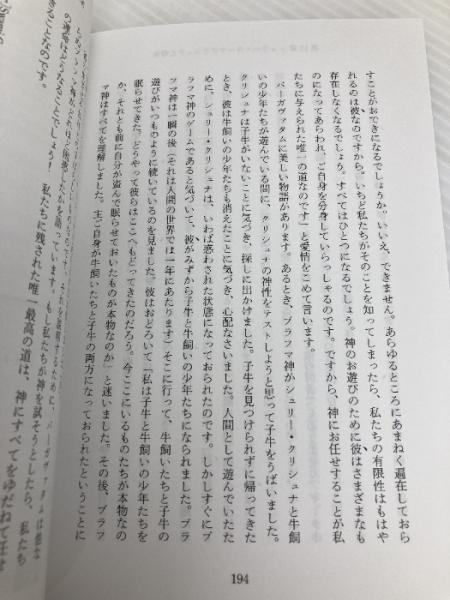 すことがおできになるでしょうか。いいえ、できません。あらゆるところにあまねく遍在しておら
れるのは彼なのですから。いちど私たちがそのことを知ってしまったら、私たちの有限性はもはや
存在しなくなるでしょう。すべてはひとつになるでしょう。神のお遊びのために彼はさまざまなも
のになってあらわれ、ご自身を分身していらっしゃるのです。ですから、神にお任せすることが私
たちに与えられた唯一の道なのです」と愛情をこめて言います。
バーガヴァタムに美しい物語があります。あるとき、ブラフマ神がシュリー・クリシュナと牛飼
いの少年たちが遊んでいる間に、クリシュナの神性をテストしようと思って子牛をうばいました。
クリシュナは子牛がいないことに気づき、探しに出かけました。子牛を見つけられずに帰ってきた
とき、彼は牛飼いの少年たちも消えたことに気づき、心配なさいました。人間として遊んでいたた
めに、シュリー・クリシュナは、いわば惑わされた状態になっておられたのです。しかしすぐにブ
ラフマ神のゲームであると気づいて、彼がみずから子牛と牛飼いの少年たちになられました。ブラ
フマ神は一瞬の後（それは人間の世界では一年にあたります）そこに行って、牛飼いたちと子牛の
遊びがいつものように続いているのを見ました。彼はおどろいて「私は子牛と牛飼いの少年たちを
眠らせてきた。どうやって彼らはここへもどってきたのだろう。今ここにいるものたちが本物なの
か、それとも前に自分が盗んで眠らせておいたものが本物なのか」と迷いました。その後、ブラフ
マ神はすべてを理解しました。主ご自身が牛飼いたちと子牛の両方になっておられたということ
もし私たちが神を試そうとしたら、私たち
の運命はどうなることでしょう！私たちに残された唯一最高の道は、神にすべてをゆだねて任せ
きることなのです。
194